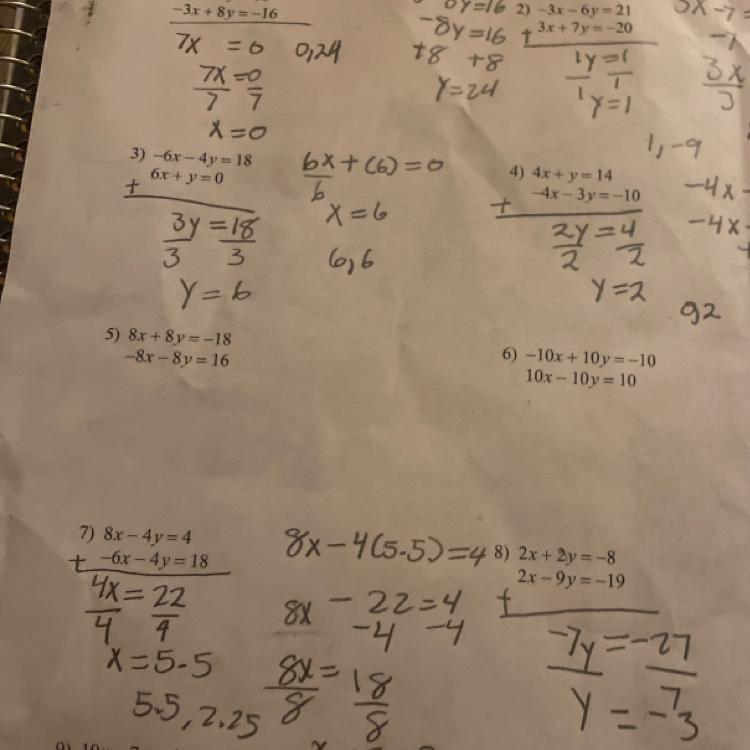 -3x + 8y = -16
7x = 0 0,24
7x = 0
7 7
x = 0
-8y = 16
+8 +8
y = 24
2) -3x - 6y = 21
+ 3x + 7y = -20
1y = 1
1 1
y = 1
-7
3x
3
1, -9
3) -6x - 4y = 18
+ 6x + y = 0
3y = 18
3 3
y = 6
6x + (6) = 0
6
x = 6
6,6
4) 4x + y = 14
+ -4x - 3y = -10
2y = 4
2 2
y = 2
-4x -
-4x -
92
5) 8x + 8y = -18
-8x - 8y = 16
6) -10x + 10y = -10
10x - 10y = 10
7) 8x - 4y = 4
+ -6x - 4y = 18
4x = 22
4 4
x = 5.5
5.5, 2.25
8x - 4(5.5) = 4
8x - 22 = 4
-4 -4
8x = 18
8 8
8) 2x + 2y = -8
+ 2x - 9y = -19
-7y = -27
7
y = -3